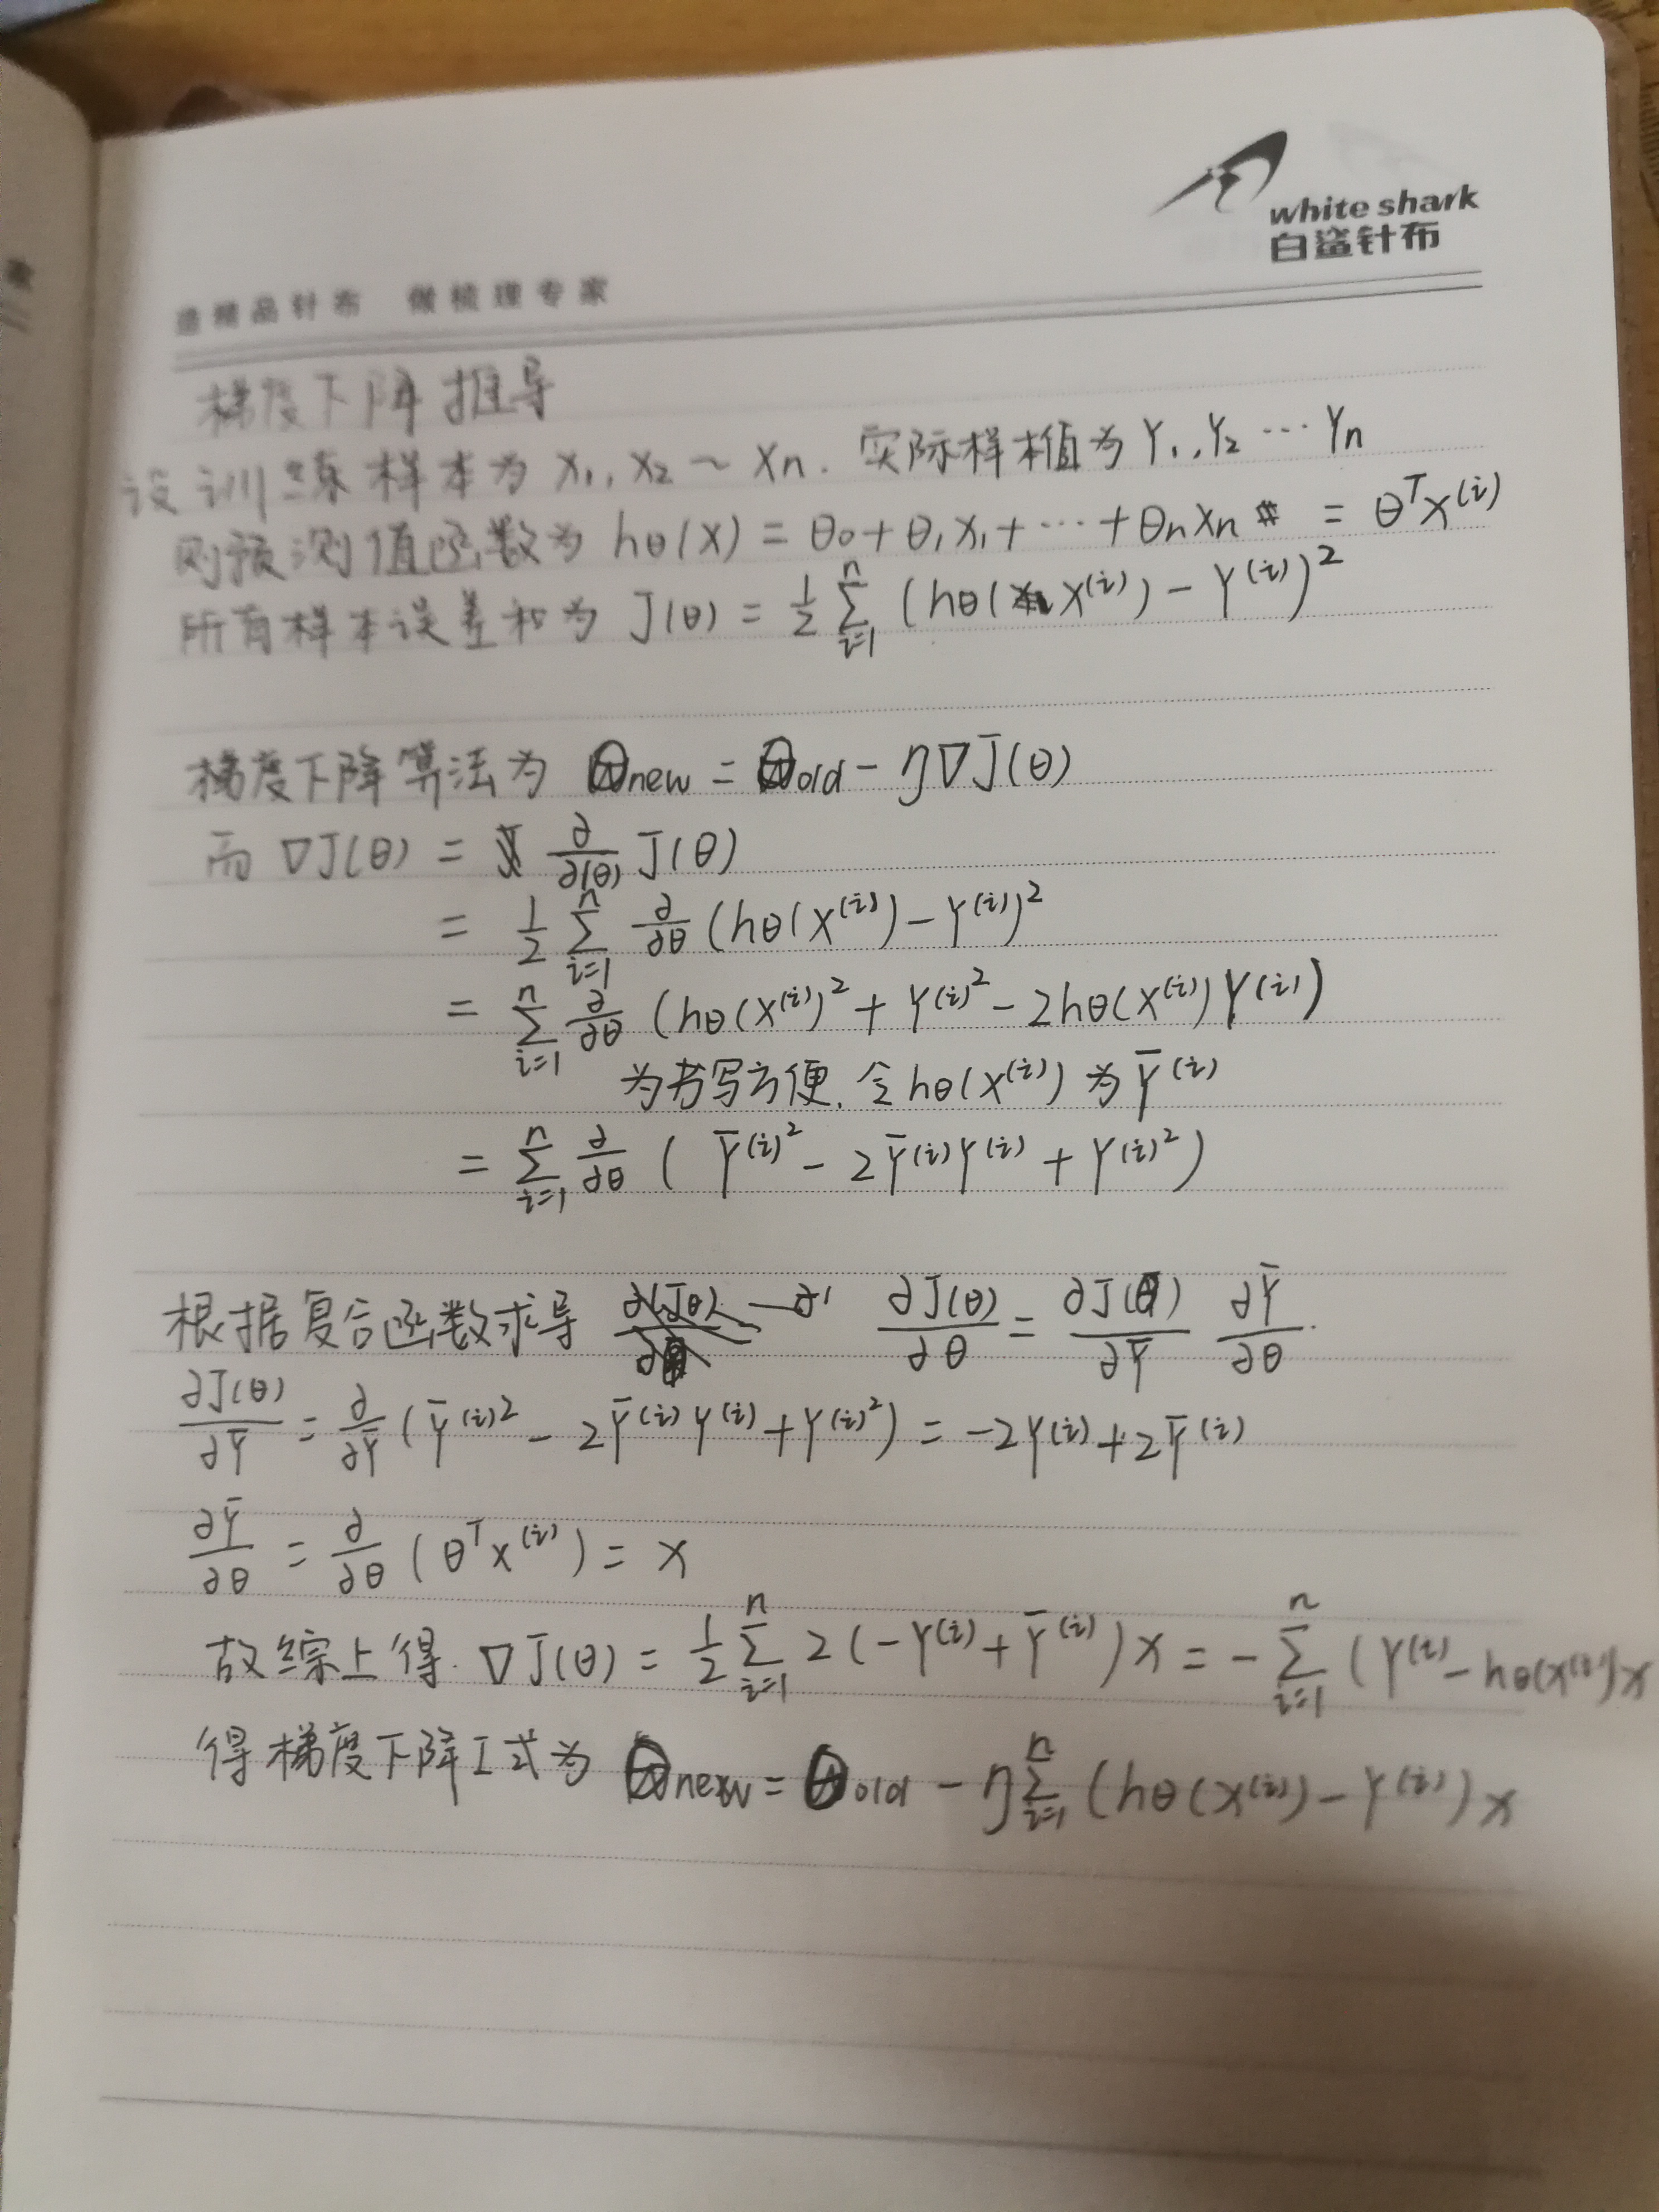 white shark
白鲨针布
造精品针布 做梳理专家
梯度下降推导
设训练样本为 X₁, X₂ ~ Xn. 实际样本值为 Y₁, Y₂ ⋯ Yn
则预测值函数为 hθ(X) = θ₀ + θ₁X₁ + ⋯ + θnXn = θᵀX⁽ⁱ⁾
所有样本误差和为 J(θ) = 1/2 Σ_{i=1}^{n} (hθ(X⁽ⁱ⁾) - Y⁽ⁱ⁾)²
梯度下降算法为 θnew = θold - η∇J(θ)
而 ∇J(θ) = ∂/∂(θ) J(θ)
= 1/2 Σ_{i=1}^{n} ∂/∂θ (hθ(X⁽ⁱ⁾) - Y⁽ⁱ⁾)²
= Σ_{i=1}^{n} ∂/∂θ (hθ(X⁽ⁱ⁾)² + Y⁽ⁱ⁾² - 2hθ(X⁽ⁱ⁾)Y⁽ⁱ⁾)
为书写方便, 令 hθ(X⁽ⁱ⁾) 为 Ȳ⁽ⁱ⁾
= Σ_{i=1}^{n} ∂/∂θ (Ȳ⁽ⁱ⁾² - 2Ȳ⁽ⁱ⁾Y⁽ⁱ⁾ + Y⁽ⁱ⁾²)
根据复合函数求导 ∂J(θ)/∂θ = ∂J(θ)/∂Ȳ ∂Ȳ/∂θ.
∂J(θ)/∂Ȳ = ∂/∂Ȳ (Ȳ⁽ⁱ⁾² - 2Ȳ⁽ⁱ⁾Y⁽ⁱ⁾ + Y⁽ⁱ⁾²) = -2Y⁽ⁱ⁾ + 2Ȳ⁽ⁱ⁾
∂Ȳ/∂θ = ∂/∂θ (θᵀX⁽ⁱ⁾) = X
故综上得. ∇J(θ) = 1/2 Σ_{i=1}^{n} 2(-Y⁽ⁱ⁾ + Ȳ⁽ⁱ⁾)X = -Σ_{i=1}^{n} (Y⁽ⁱ⁾ - hθ(X⁽ⁱ⁾)X
得梯度下降工式为 θnew = θold - ηΣ_{i=1}^{n} (hθ(X⁽ⁱ⁾) - Y⁽ⁱ⁾)X